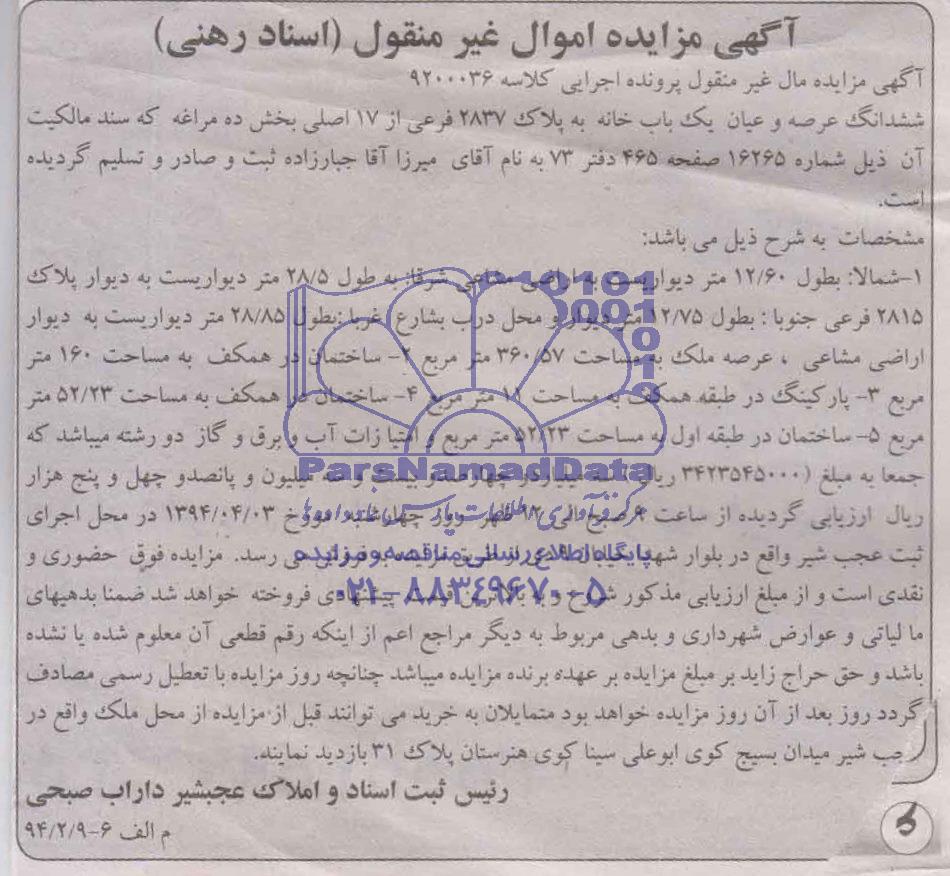 آگهی مزایده اموال غیر منقول (اسناد رهنی)
آگهی مزایده مال غیر منقول پرونده اجرایی کلاسه ۹۲۰۰۰۳۶
ششدانگ عرصه و عیان یک باب خانه به پلاک ۲۸۳۷ فرعی از ۱۷ اصلی بخش ده مراغه که سند مالکیت
آن ذیل شماره ۱۶۲۶۵ صفحه ۴۶۵ دفتر ۷۳ به نام آقای میرزا آقا جبارزاده ثبت و صادر و تسلیم گردیده
است.
مشخصات به شرح ذیل می باشد:
۱-شمالا: بطول ۱۲/۶۰ متر دیواریست به اراضی مشاعی شرقا: به طول ۲۸/۵ متر دیواریست به دیوار پلاک
۲۸۱۵ فرعی جنوبا : بطول ۱۲/۷۵ متر دیوار و محل درب بشارع غربا :بطول ۲۸/۸۵ متر دیواریست به دیوار
اراضی مشاعی ، عرصه ملک به مساحت ۳۶۰/۵۷ متر مربع ۲- ساختمان در همکف به مساحت ۱۶۰ متر
مربع ۳- پارکینگ در طبقه همکف به مساحت ۱۸ متر مربع ۴- ساختمان در همکف به مساحت ۵۲/۲۳ متر
مربع ۵- ساختمان در طبقه اول به مساحت ۵۲/۲۳ متر مربع و امتیازات آب و برق و گاز دو رشته میباشد که
جمعا به مبلغ (۳۴۲۳۵۴۵۰۰۰ ریال) سه میلیارد و چهارصدو بیست و سه میلیون و پانصدو چهل و پنج هزار
ریال ارزیابی گردیده از ساعت ۹ صبح الی ۱۲ ظهر روز چهارشنبه مورخ ۱۳۹۴/۰۴/۰۳ در محل اجرای
ثبت عجب شیر واقع در بلوار شهید از طریق مزایده به فروش می رسد. مزایده فوق حضوری و
نقدی است و از مبلغ ارزیابی مذکور شروع و به بالاترین قیمت پیشنهادی فروخته خواهد شد ضمنا بدهیهای
ما لیاتی و عوارض شهرداری و بدهی مربوط به دیگر مراجع اعم از اینکه رقم قطعی آن معلوم شده یا نشده
باشد و حق حراج زاید بر مبلغ مزایده بر عهده برنده مزایده میباشد چنانچه روز مزایده با تعطیل رسمی مصادف
گردد روز بعد از آن روز مزایده خواهد بود متمایلان به خرید می توانند قبل از مزایده از محل ملک واقع در
عجب شیر میدان بسیج کوی ابوعلی سینا کوی هنرستان پلاک ۳۱ بازدید نمایند.
رئیس ثبت اسناد و املاک عجبشیر داراب صبحی
م الف ۶-۹۴/۲/۹
ParsNamadData
گردآوری اطلاعات پارس نماد داده ها
پایگاه اطلاع رسانی مناقصه و مزایده
۰۲۱-۸۸۳۴۹۶۷۰-۵